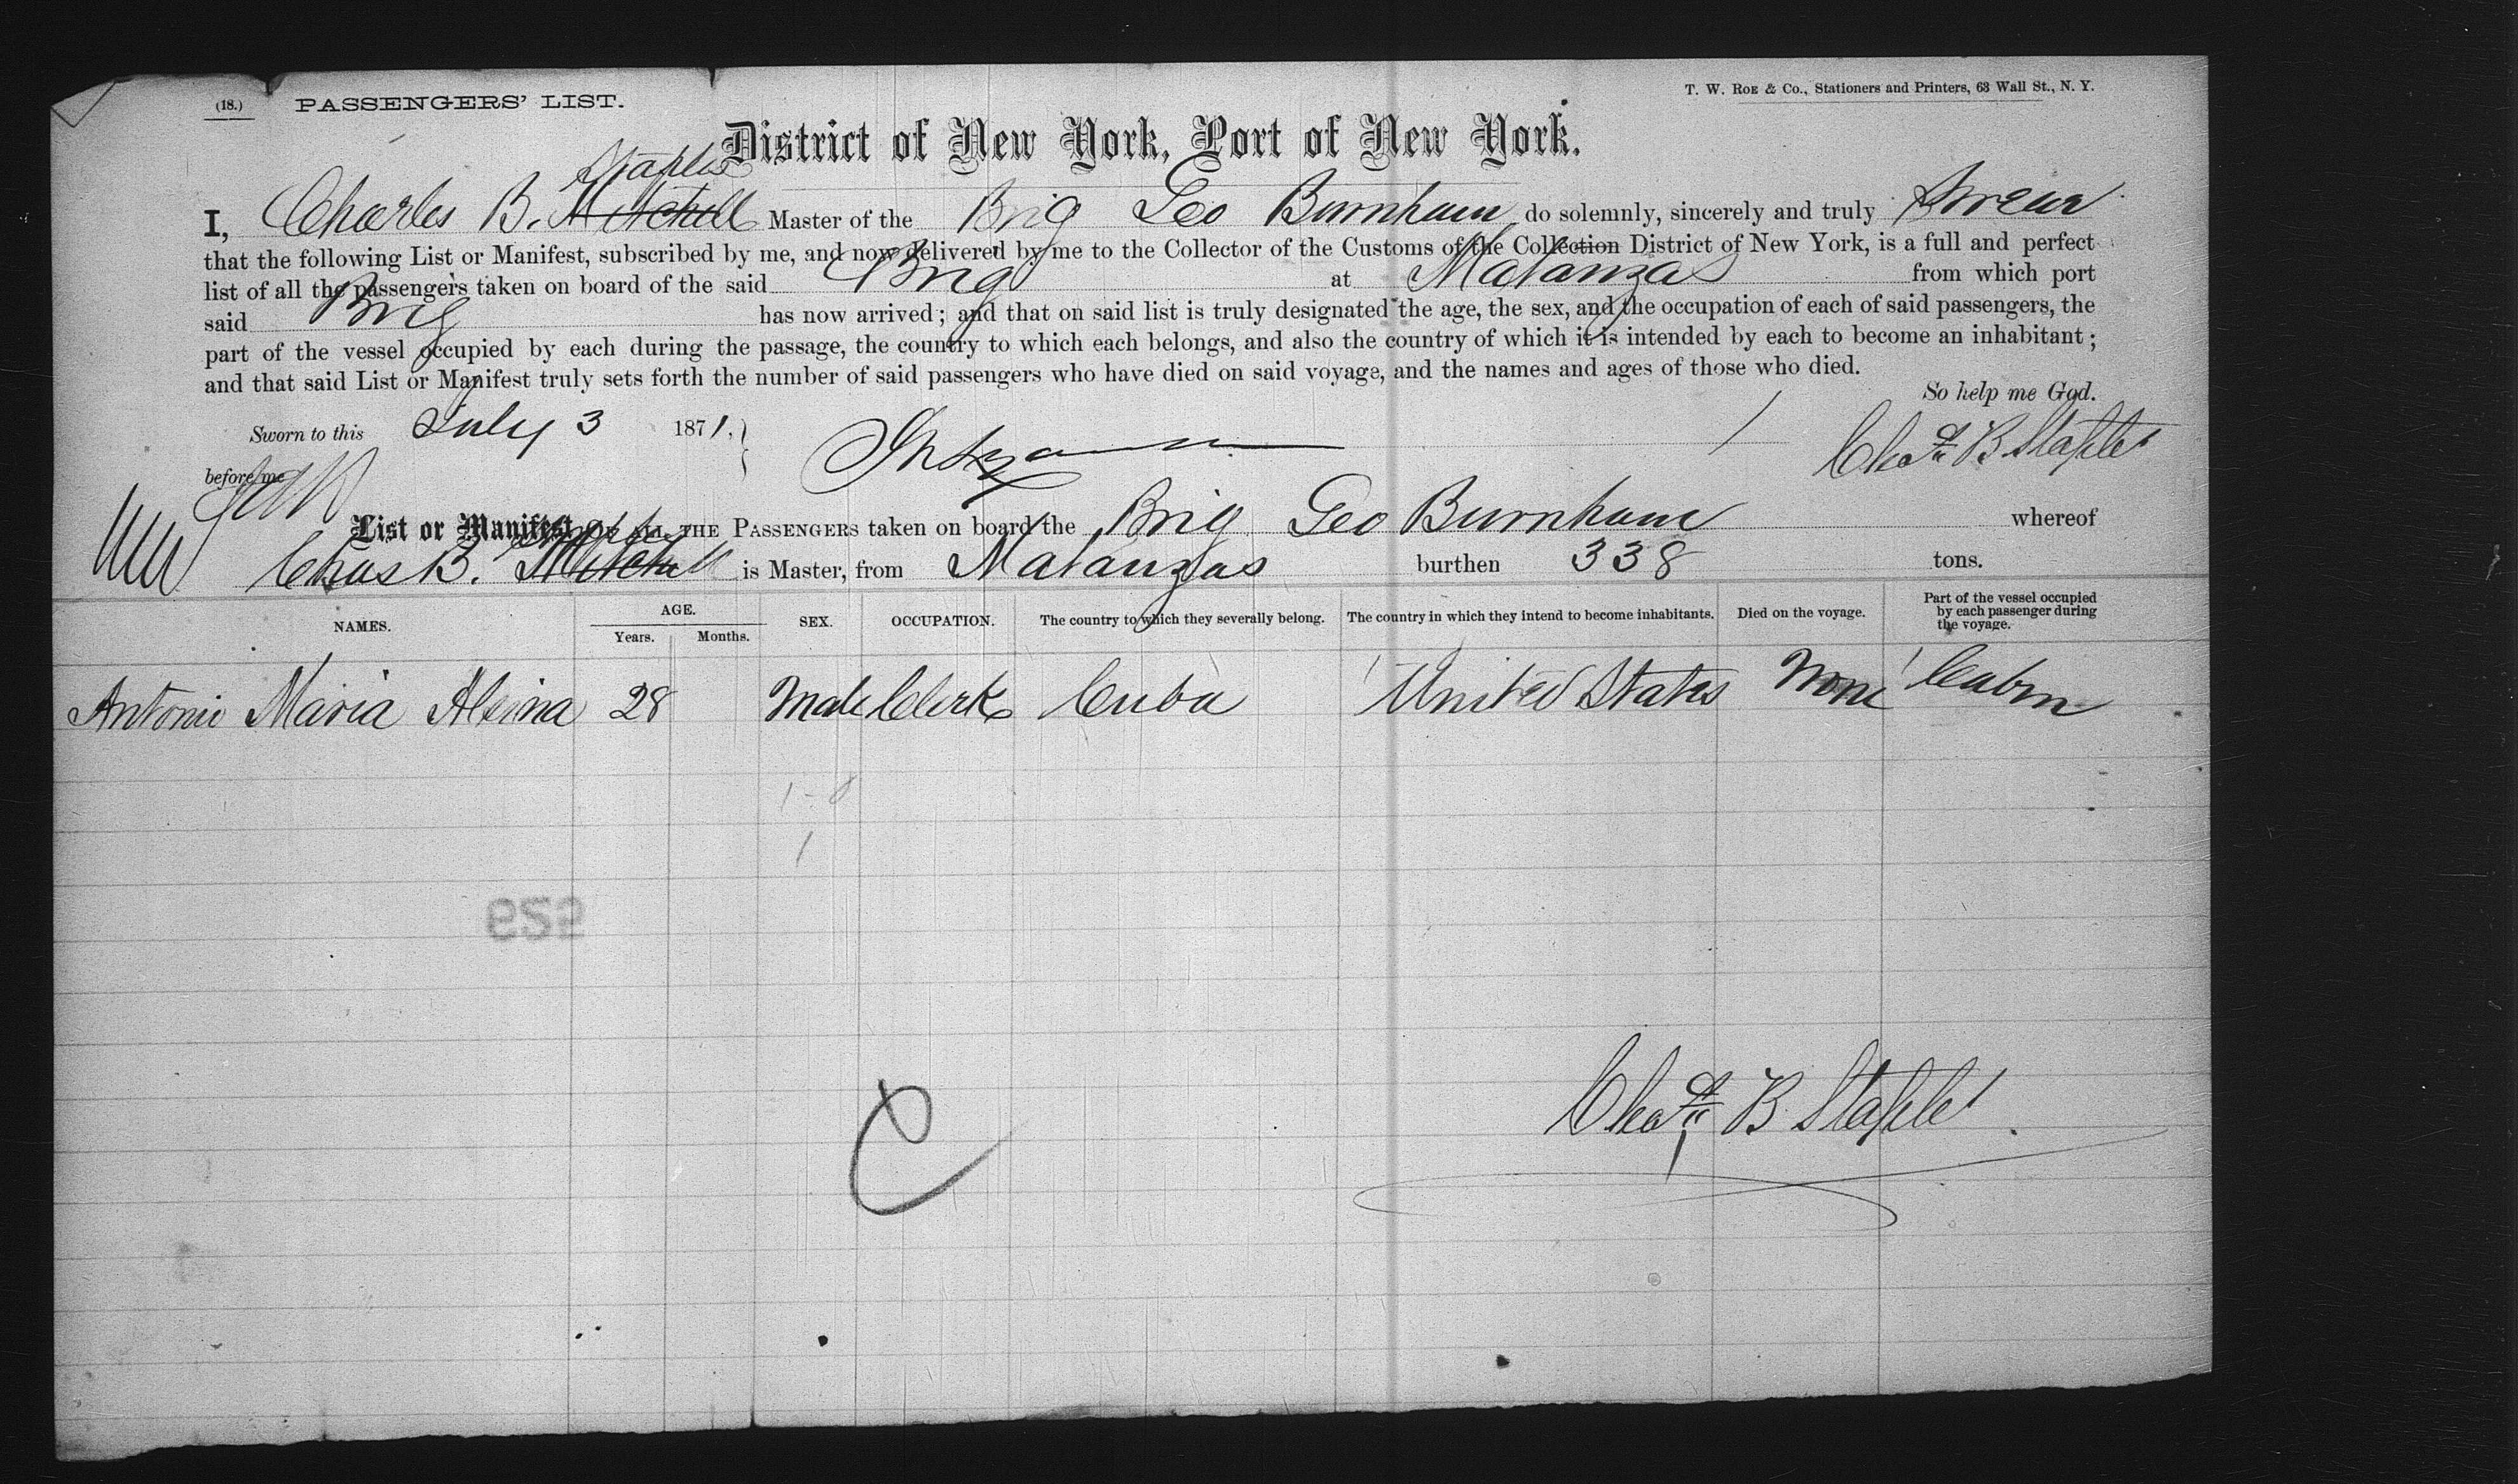 (18.) PASSENGERS' LIST.
T. W. Roe & Co., Stationers and Printers, 63 Wall St., N. Y.
District of New York, Port of New York.
Staples
I, Charles B. Mitchell Master of the Brig Geo Burnham do solemnly, sincerely and truly Swear
that the following List or Manifest, subscribed by me, and now delivered by me to the Collector of the Customs of the Collection District of New York, is a full and perfect
list of all the passengers taken on board of the said Brig at Matanzas from which port
said Brig has now arrived; and that on said list is truly designated the age, the sex, and the occupation of each of said passengers, the
part of the vessel occupied by each during the passage, the country to which each belongs, and also the country of which it is intended by each to become an inhabitant;
and that said List or Manifest truly sets forth the number of said passengers who have died on said voyage, and the names and ages of those who died.
So help me God.
Sworn to this July 3 1871. Chas B Staples
before me
List or Manifest OF ALL THE PASSENGERS taken on board the Brig Geo Burnham whereof
Staples
Chas B. Mitchell is Master, from Matanzas burthen 338 tons.
NAMES. AGE. Years. Months. SEX. OCCUPATION. The country to which they severally belong. The country in which they intend to become inhabitants. Died on the voyage. Part of the vessel occupied by each passenger during the voyage.
Antonio Maria Alsina 28 Male Clerk Cuba United States None Cabin
1
929
Chas B Staples